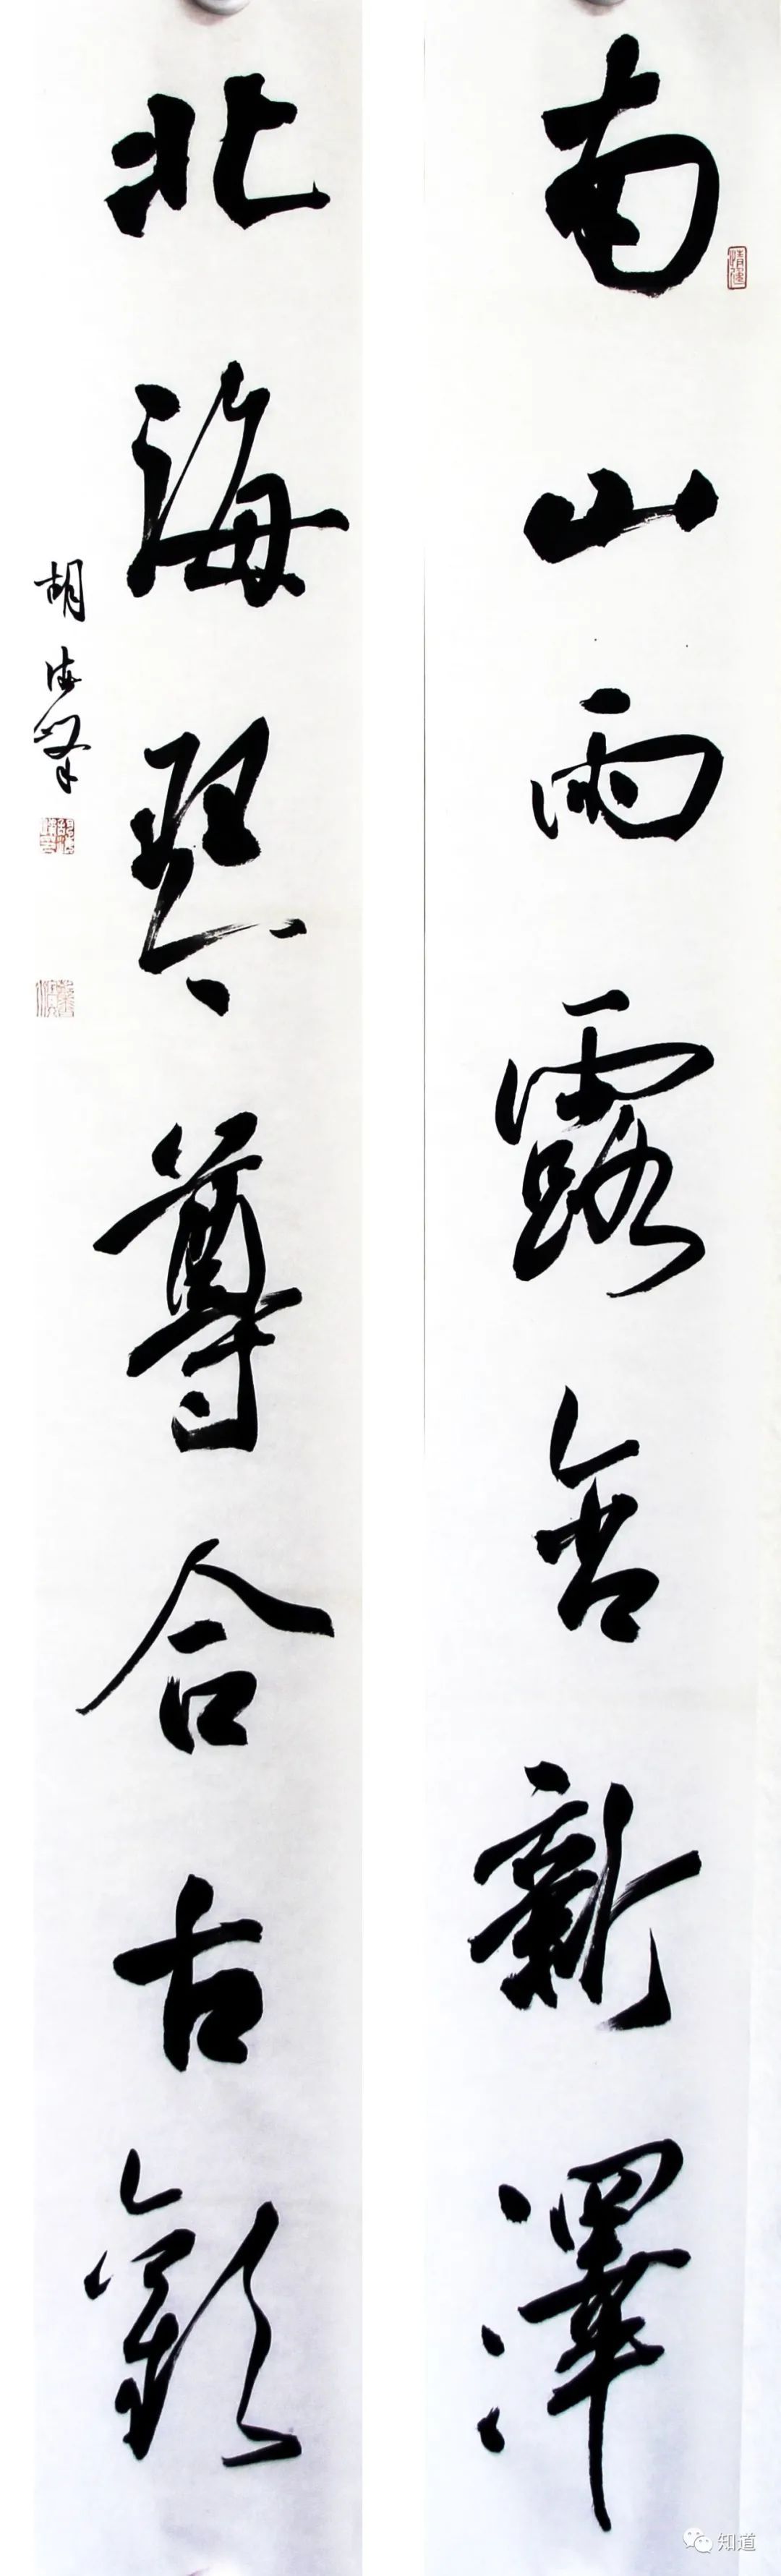 南山雨露含新澤
北海琴尊合古歡
胡
知道